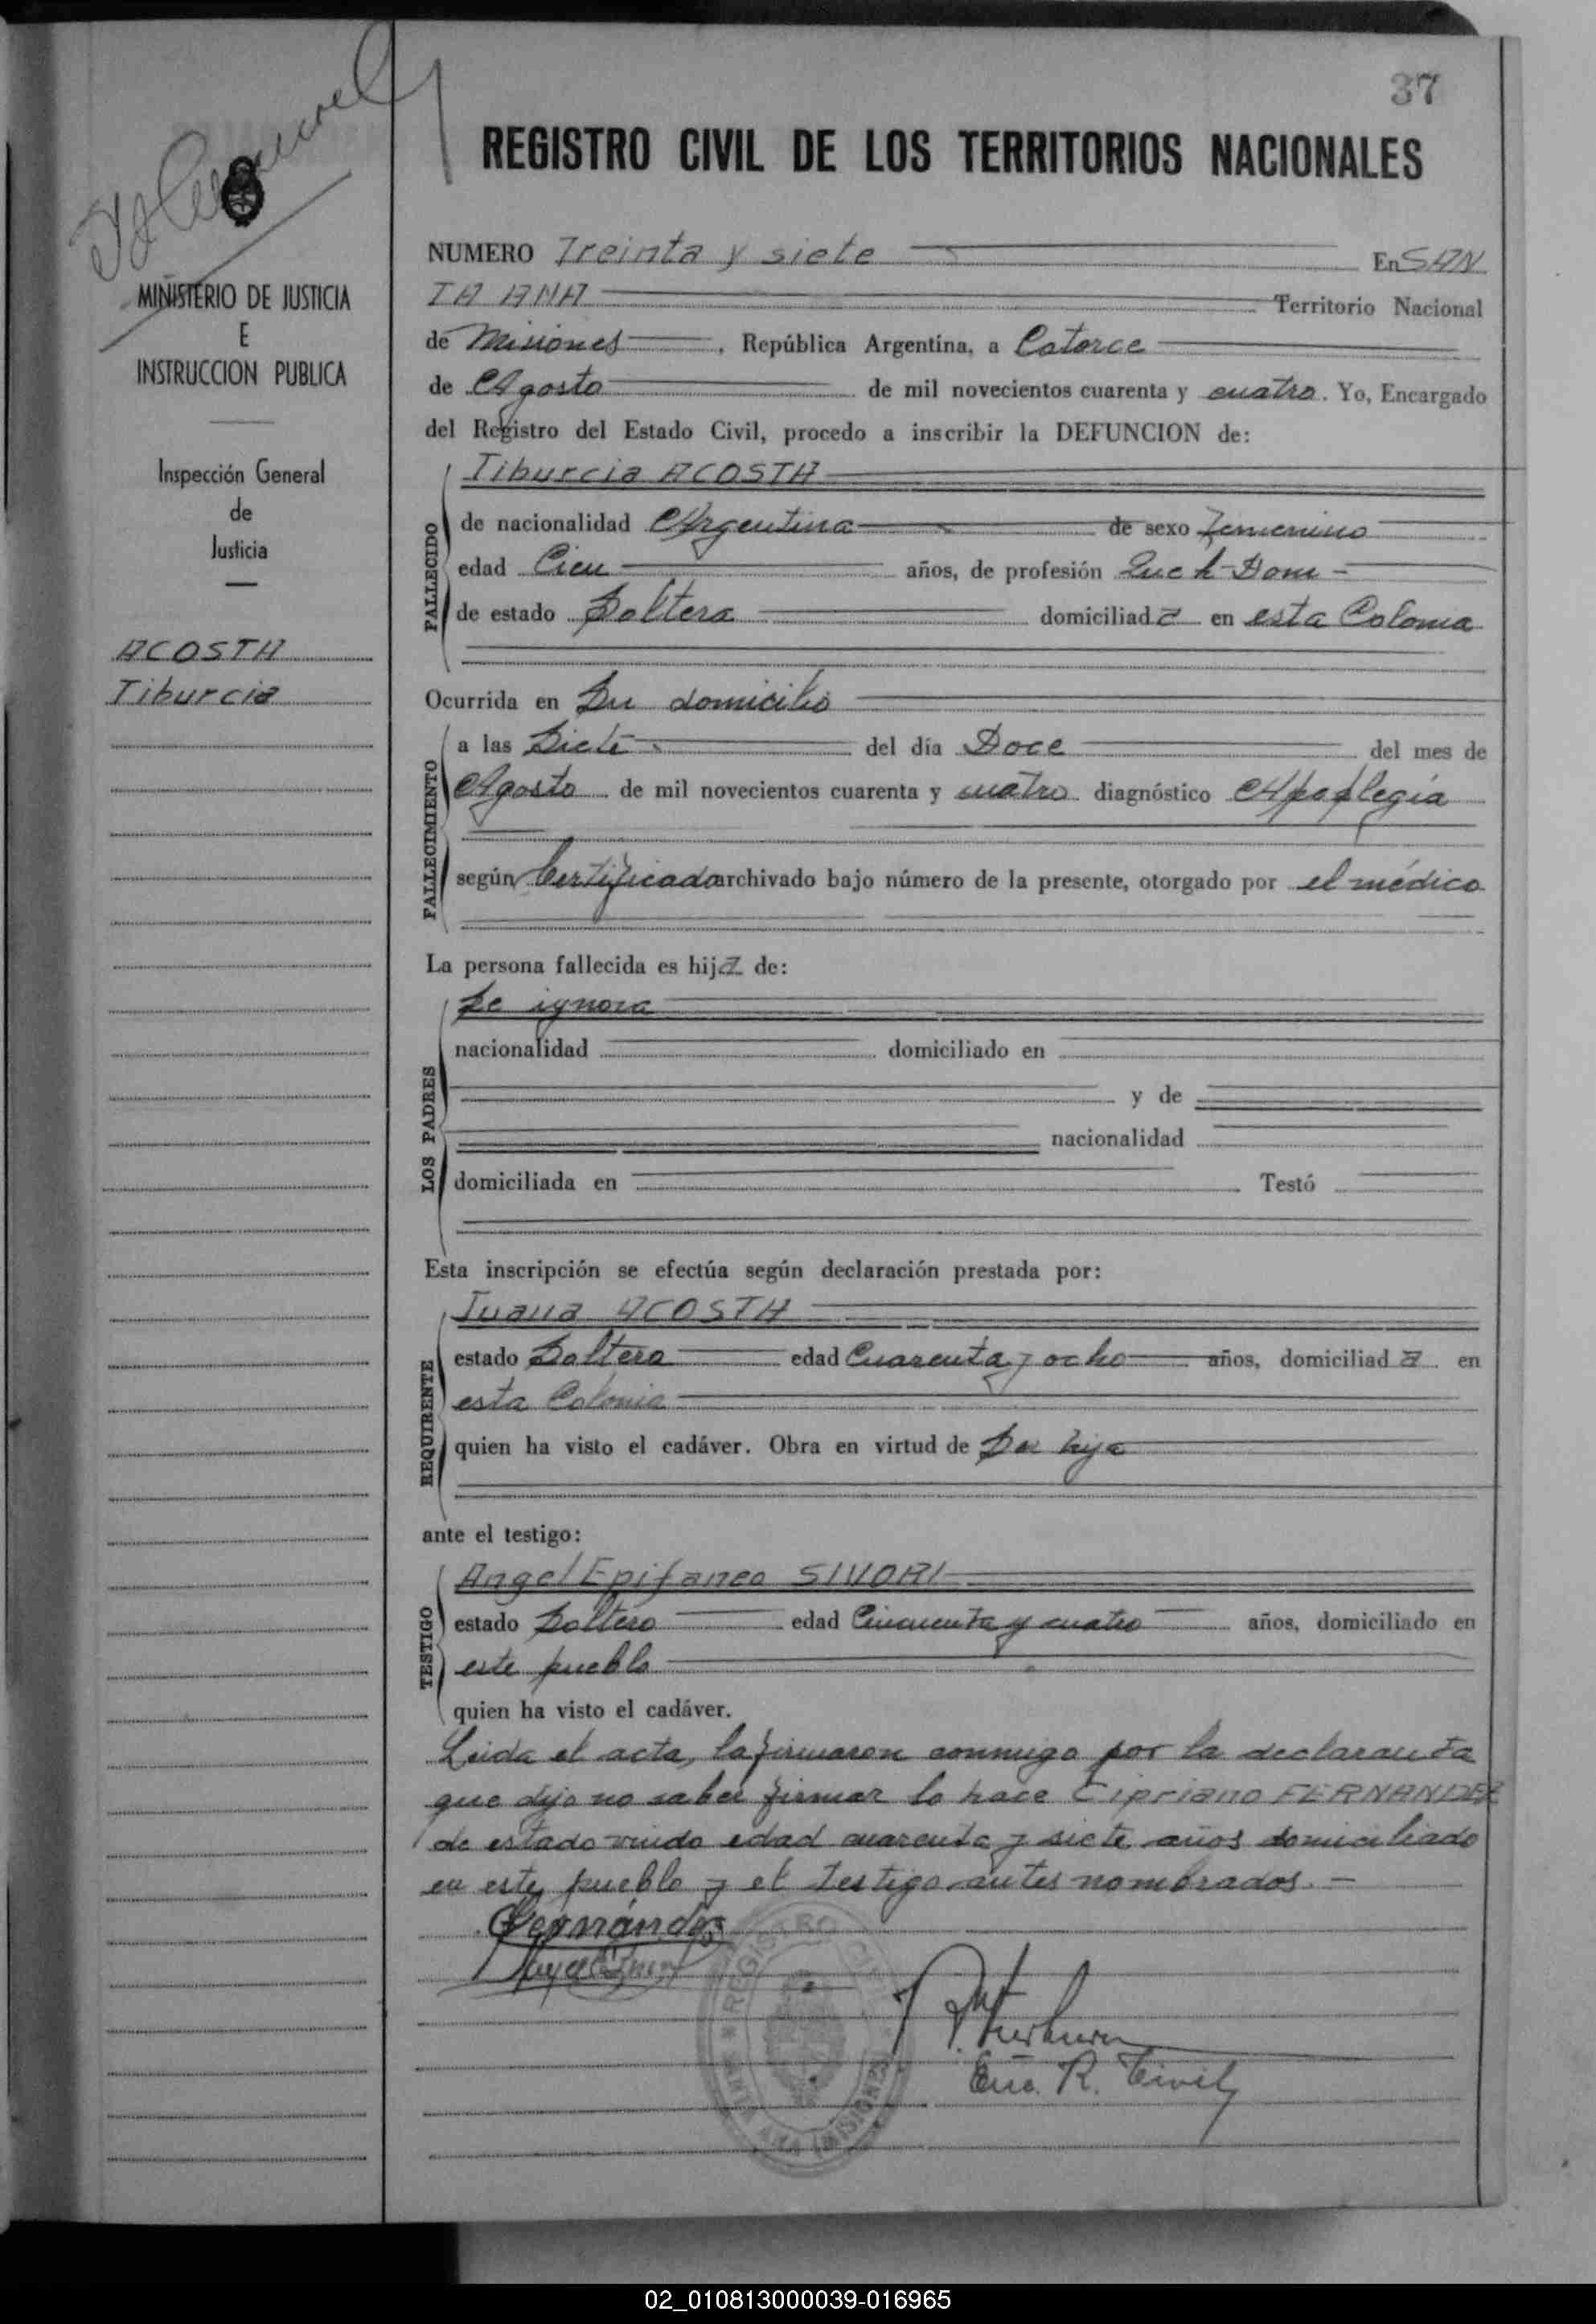 37
REGISTRO CIVIL DE LOS TERRITORIOS NACIONALES
MINISTERIO DE JUSTICIA
E
INSTRUCCION PUBLICA
Inspección General
de
Justicia
ACOSTA
Tiburcia
NUMERO Treinta y siete En SAN
TA ANA Territorio Nacional
de Misiones, República Argentina, a Catorce
de Agosto de mil novecientos cuarenta y cuatro. Yo, Encargado
del Registro del Estado Civil, procedo a inscribir la DEFUNCION de:
Tiburcia ACOSTA
FALLECIDO
de nacionalidad Argentina de sexo Femenino
edad Cien años, de profesión Queh-Dom-
de estado Soltera domiciliada en esta Colonia
Ocurrida en Su domicilio
FALLECIMIENTO
a las Siete del día Doce del mes de
Agosto de mil novecientos cuarenta y cuatro diagnóstico Apoplegía
según Certificado archivado bajo número de la presente, otorgado por el médico
La persona fallecida es hija de:
LOS PADRES
Se ignora
nacionalidad domiciliado en
y de
nacionalidad
domiciliada en Testó
Esta inscripción se efectúa según declaración prestada por:
REQUIRENTE
Juana ACOSTA
estado Soltera edad Cuarenta y ocho años, domiciliada en
esta Colonia
quien ha visto el cadáver. Obra en virtud de Su hija
ante el testigo:
TESTIGO
Angel Epifaneo SIVORI
estado Soltero edad Cincuenta y cuatro años, domiciliado en
este pueblo
quien ha visto el cadáver.
Leida el acta, la firmaron conmigo por la declaranta
que dijo no saber firmar lo hace Cipriano FERNANDEZ
de estado viudo edad cuarenta y siete años domiciliado
en este pueblo y el testigo antes nombrados.-
Fernández
REGISTRO CIVIL
SANTA ANA (MISIONES)
Enc. R. Civil
02_010813000039-016965